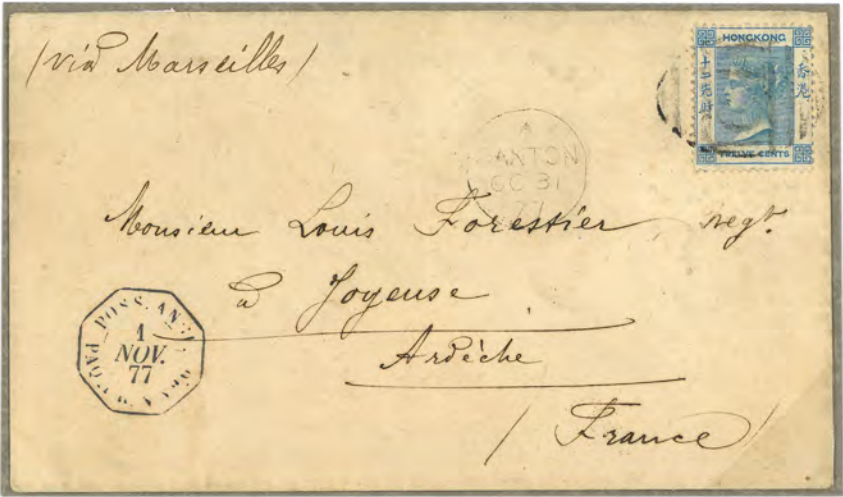 (via Marseilles)
HONGKONG
香港
TWELVE CENTS
A
CANTON
OC 31
77
Monsieur Louis Forestier negt.
à Joyeuse
Ardèche
(France)
POSS. ANG.
1
NOV.
77
PAQ.